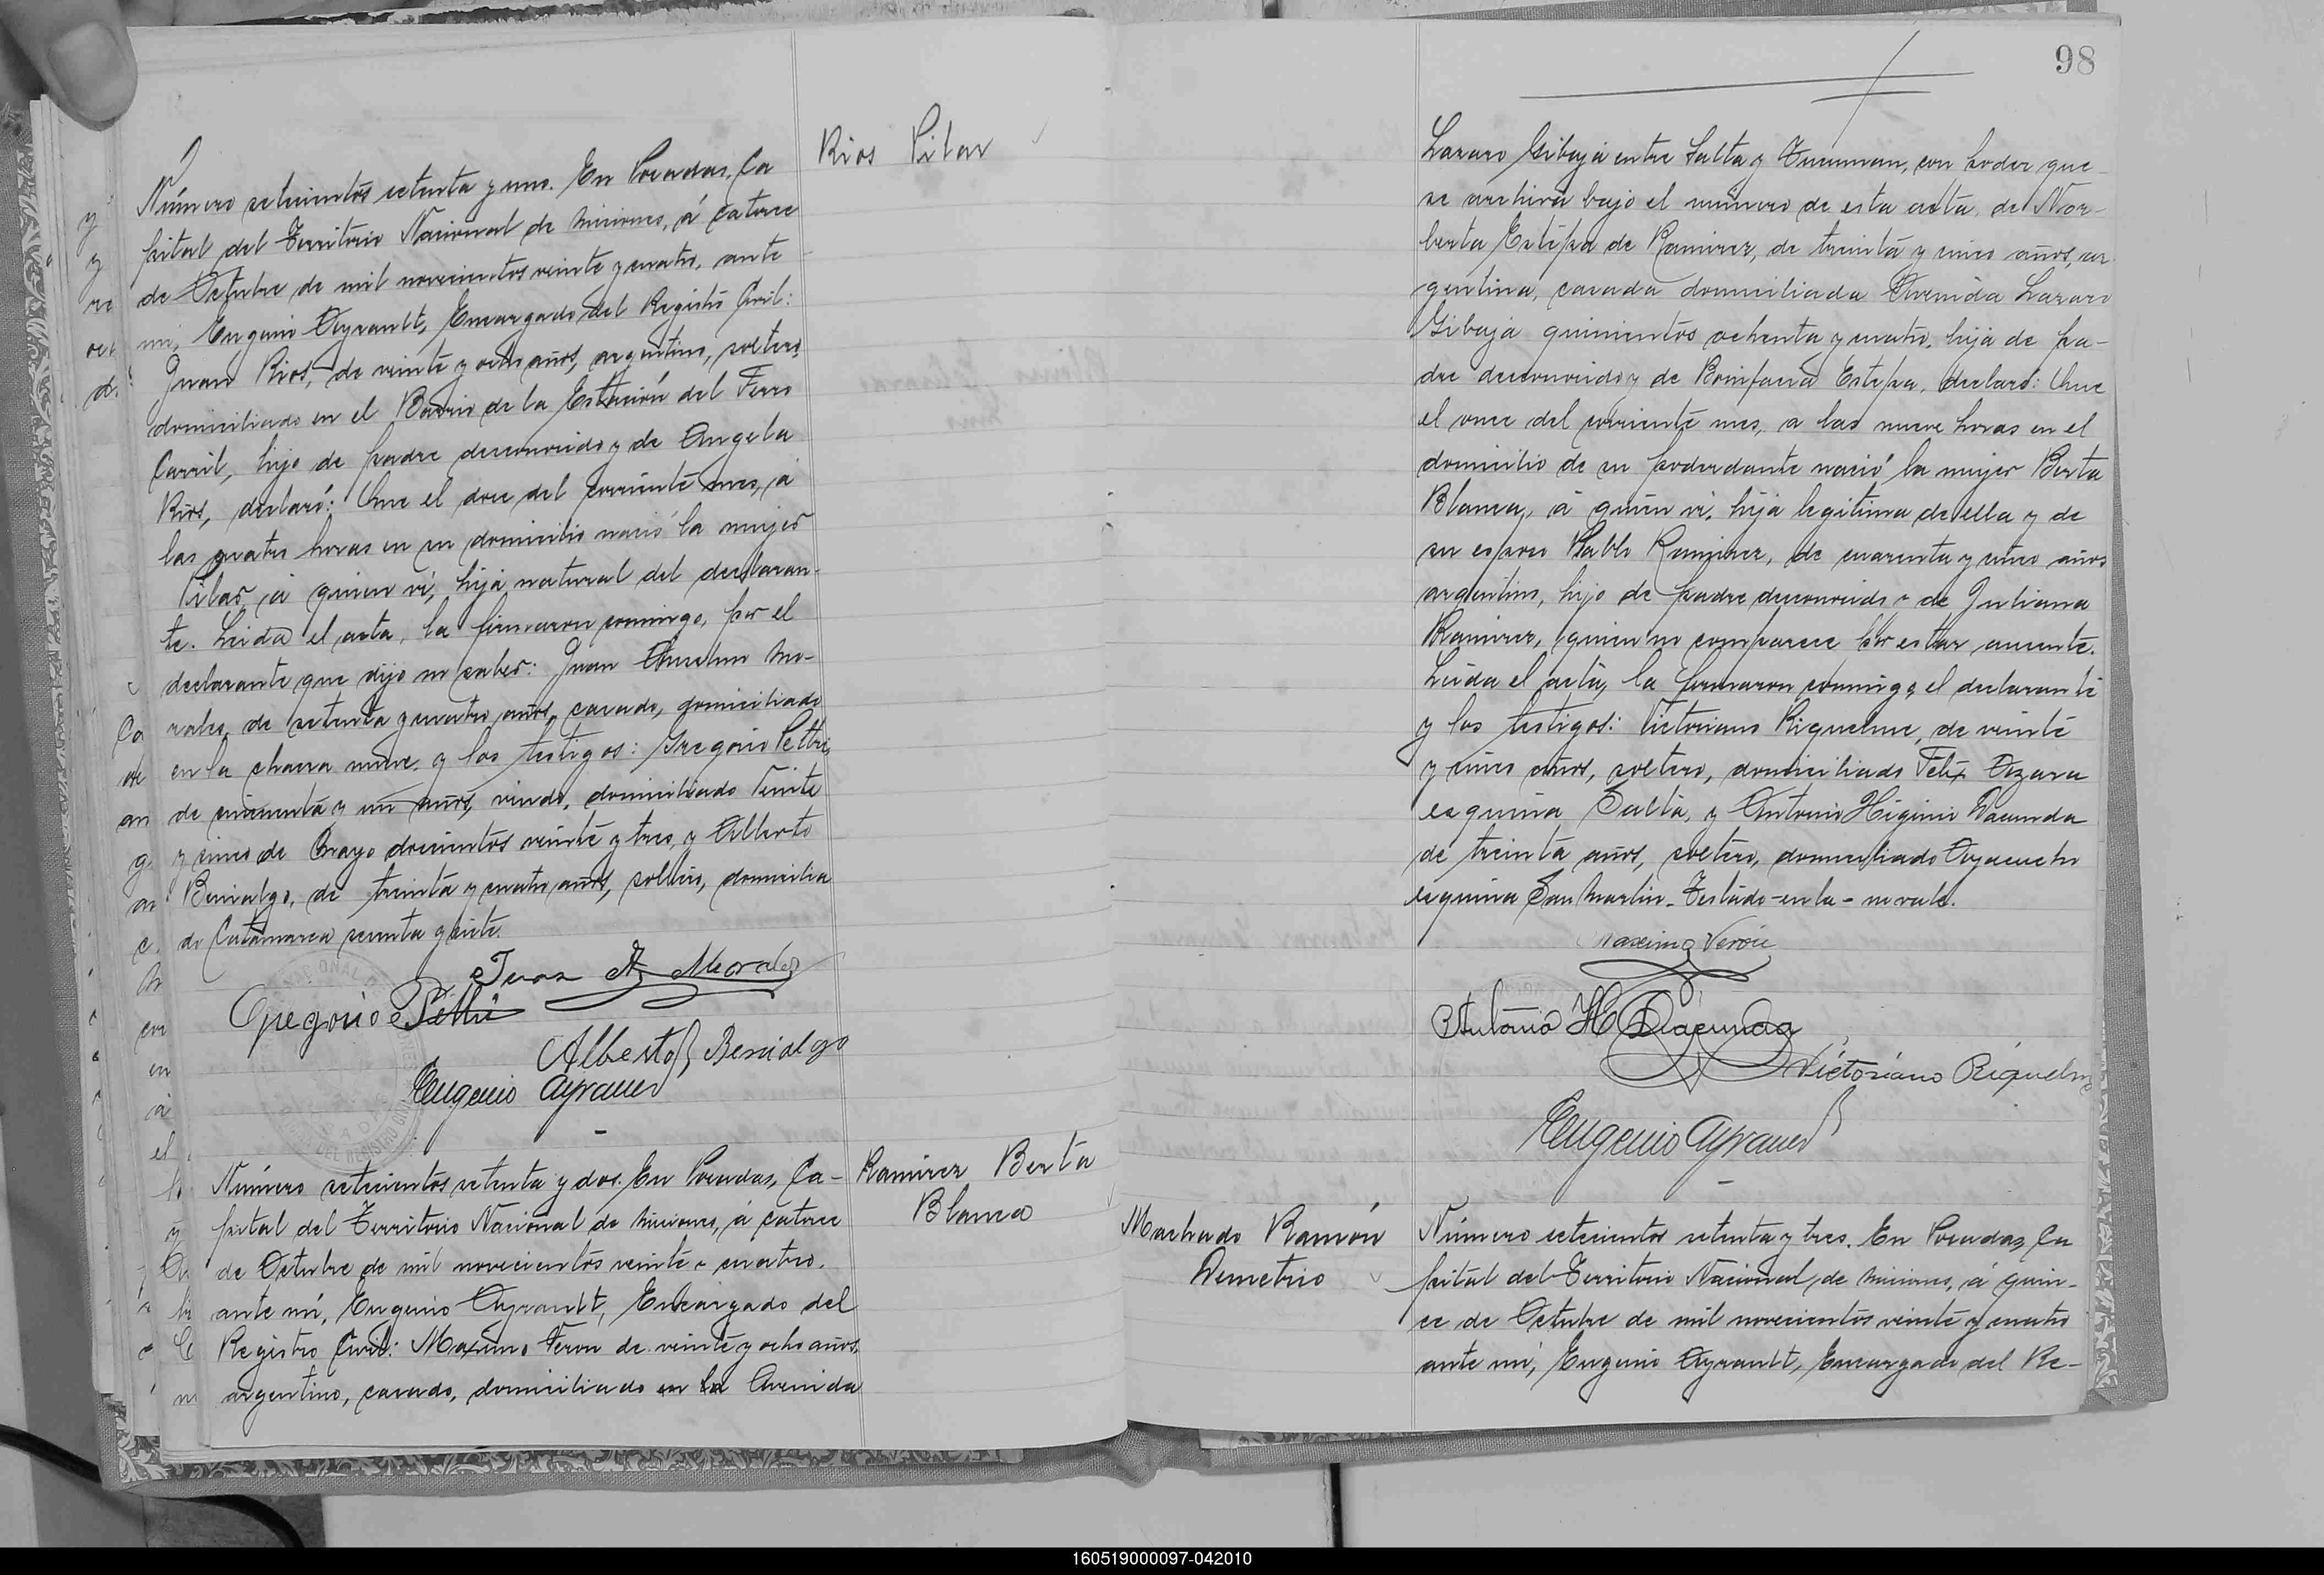 Rios Pilar
Número setecientos setenta y uno. En Posadas, Ca
pital del Territorio Nacional de Misiones, á catorce
de Octubre de mil novecientos veinte y cuatro, ante
mi, Eugenio Ayrault, Encargado del Registro Civil:
Juan Rios, de veinte y ocho años, argentino, soltero,
domiciliado en el Barrio de la Estación del Ferro
Carril, hijo de padre desconocido y de Angela
Rios, declaró: Que el doce del corriente mes, á
las cuatro horas en su domicilio nació la mujer
Pilar, á quien ví, hija natural del declaran-
te. Leida el acta, la firmaron conmigo, por el
declarante que dijo no saber: Juan Anselmo Mo-
rales, de setenta y cuatro años, casado, domiciliado
en la chacra nueve, y los testigos: Gregorio Pethi,
de cincuenta y un años, viudo, domiciliado Veinte
y cinco de Mayo doscientos veinte y tres, y Alberto
Benialgo, de treinta y cuatro años, soltero, domicilia
do Catamarca sesenta y siete.
Juan A. Morales
Gregorio Pethi
Alberto Benialgo
Eugenio Ayrault
Ramirez Berta
Blanca
Número setecientos setenta y dos. En Posadas, Ca-
pital del Territorio Nacional de Misiones, á catorce
de Octubre de mil novecientos veinte y cuatro.
ante mí, Eugenio Ayrault, Encargado del
Registro Civil: Maximo Veron de veinte y ocho años,
argentino, casado, domiciliado en la Avenida
98
Lazaro Gibaja entre Salta y Tucuman, con poder que
se archiva bajo el número de esta acta, de Nor-
berta Estepa de Ramirez, de treinta y cinco años, ar
gentina, casada domiciliada Avenida Lazaro
Gibaja quinientos ochenta y cuatro, hija de pa-
dre desconocido y de Bonifacia Estepa, declaró: Que
el once del corriente mes, a las nueve horas en el
domicilio de su poderdante nació la mujer Berta
Blanca, á quien ví, hija legitima de ella y de
su esposo Pablo Ramirez, de cuarenta y cinco años
argentino, hijo de padre desconocido y de Juliana
Ramirez, quien no comparece por estar ausente.
Leida el acta, la firmaron conmigo, el declarante
y los testigos: Victoriano Riquelme, de veinte
y cinco años, soltero, domiciliado Felix Azara
esquina Salta, y Antonio Higinio Dacunda
de treinta años, soltero, domiciliado Ayacucho
esquina San Martin. Testado-en la-no vale.
Maximo Veron
Antonio H Dacunda
Victoriano Riquelme
Eugenio Ayrault
Machado Ramón
Demetrio
Número setecientos setenta y tres. En Posadas, Ca
pital del Territorio Nacional, de Misiones, á quin-
ce de Octubre de mil novecientos veinte y cuatro
ante mí, Eugenio Ayrault, Encargado del Re-
160519000097-042010